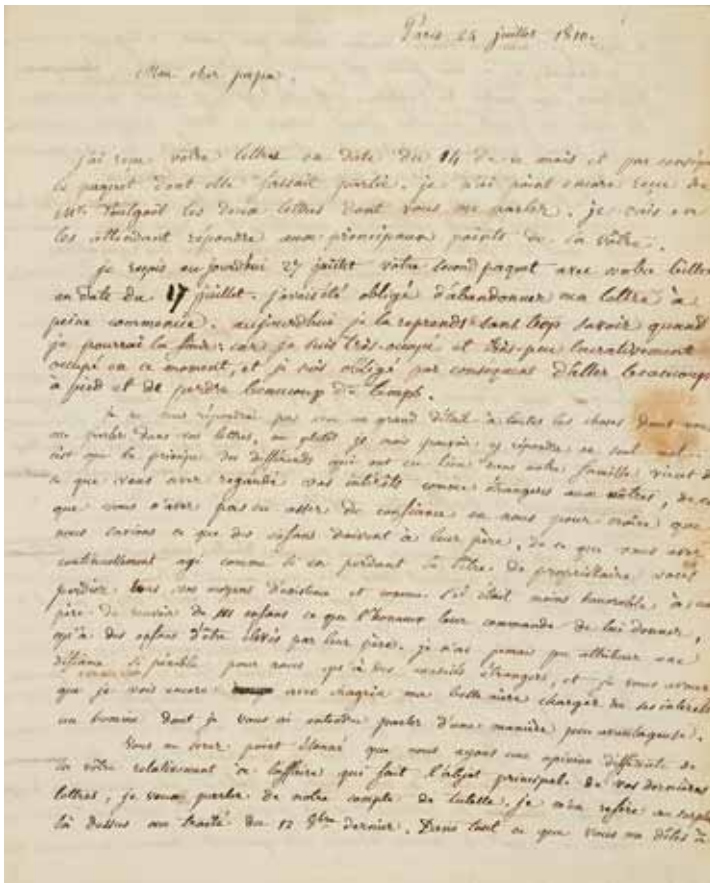 Paris 24 juillet 1810.
Mon cher papa.
j'ai reçu votre lettres en date du 14 de ce mois et par conséqu
le paquet dont elle faisait partie. je n'ai point encore reçu de
les deux lettres dont vous me parlez. je vais en
les attendant répondre aux principaux points de la vôtre.
je reçois aujourdhui 27 juillet votre second paquet avec votre lettre
en date du 17 juillet. j'avais été obligé d'abandonner ma lettre à
peine commencée. aujourdhui je la reprends sans trop savoir quand
je pourrai la finir; car je suis très-occupé et très-peu lucrativement
occupé en ce moment, et je suis obligé par conséquent d'aller beaucoup
à pied et de perdre beaucoup de temps.
je ne vous répondrai pas en grand détail à toutes les choses dont vous
me parlez dans vos lettres, ou plutôt je crois pouvoir y répondre en seul mot
c'est que le principe des différends qui ont eu lieu dans notre famille vient d
ce que vous avez regardé vos intérêts comme étrangers aux nôtres, de ce
que vous n'avez pas eu assez de confiance en nous pour croire que
nous savions ce que des enfans doivent à leur père, de ce que vous avez
continuellement agi comme si en perdant le titre de propriétaire vous
perdiez tous vos moyens d'existence et comme s'il était moins honorable à un
père de recevoir de ses enfans ce que l'honneur leur commande de lui donner,
qu'à des enfans d'être élevés par leur père. je n'ai jamais pu attribuer une
défiance si pénible pour nous qu'à des conseils étrangers, et je vous avoue
que je vois encore avec chagrin ma belle mère charger de ses intérêts
un homme dont je vous ai entendu parler d'une manière peu avantageuse.
Vous ne serez point étonné que nous ayons une opinion différente de
la vôtre relativement à l'affaire qui fait l'objet principal de vos dernières
lettres, je veux parler de notre compte de tutelle. je m'en réfère au surplu
là dessus au traité du 12 9bre dernier. Dans tout ce que vous me dites à